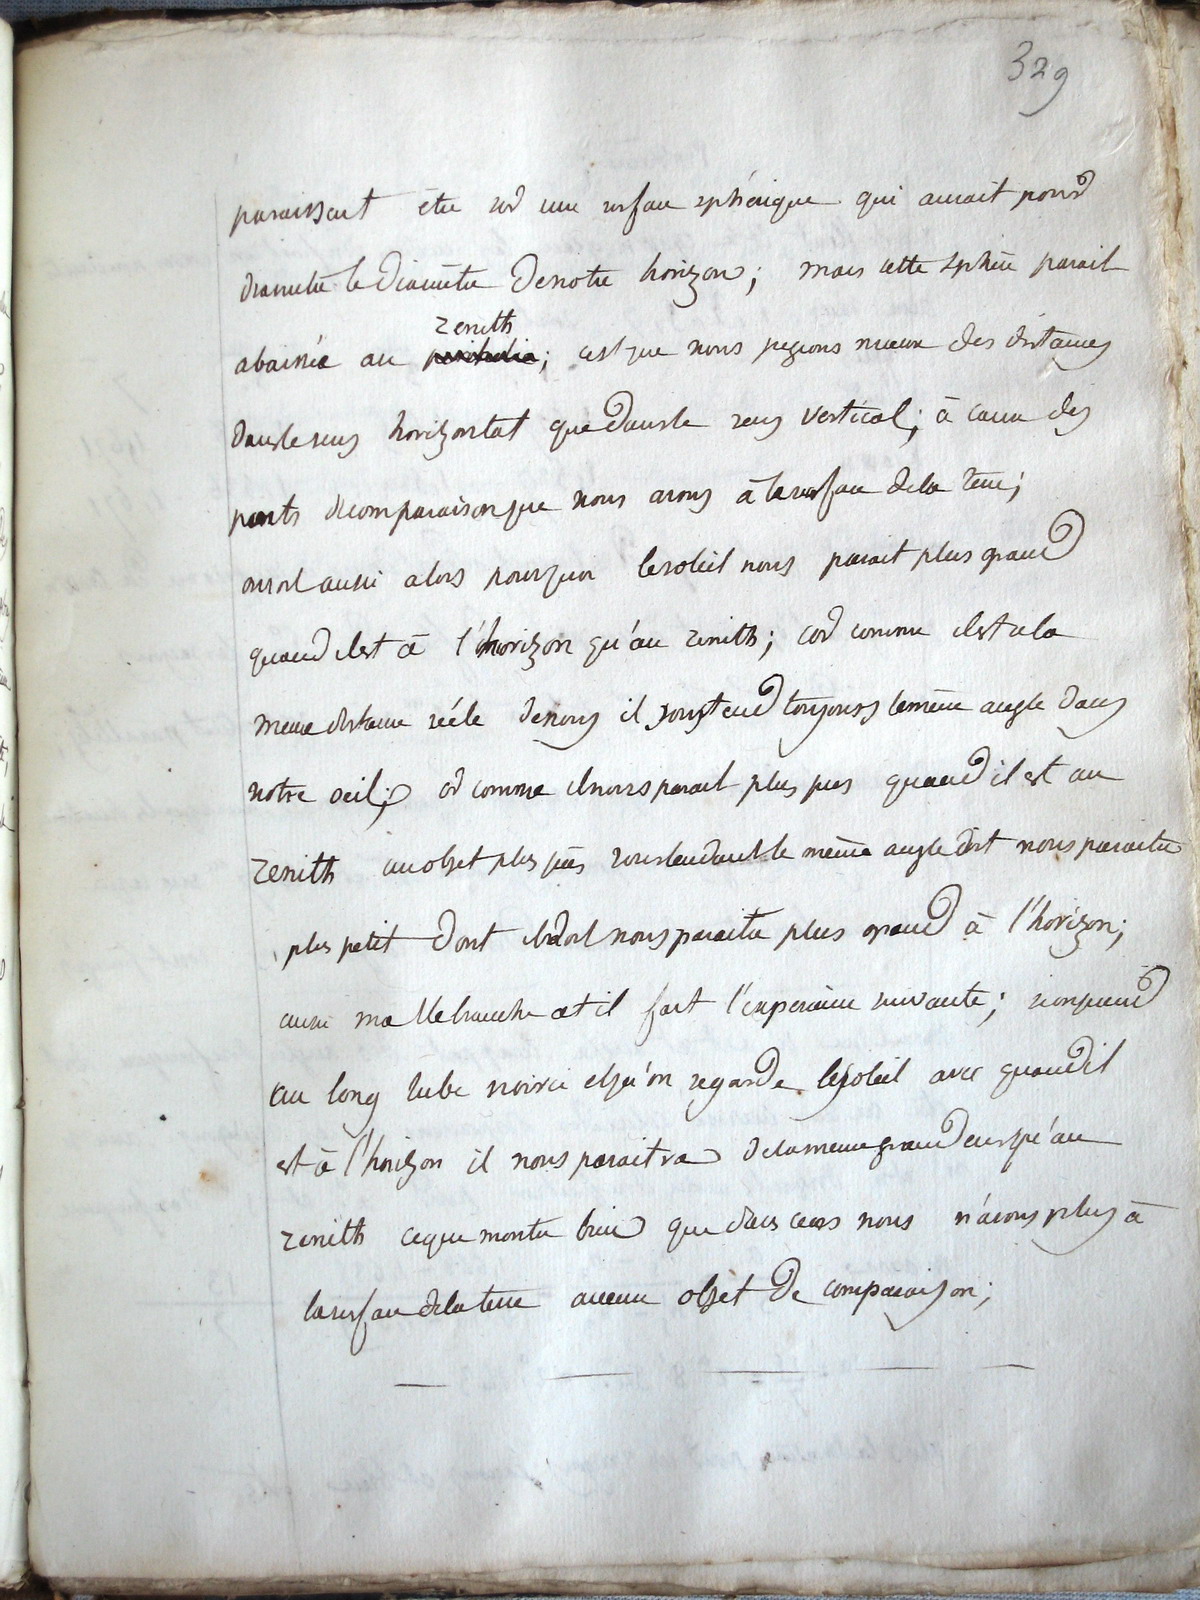 329
paraissent être sur une surface sphérique qui aurait pour
diametre le Diamètre De notre horizon; mais cette Sphère parait
zenith
abaissée au perihelie; cest que nous jugeons mieux des distances
Dans le sens horizontal que Dans le sens vertical; à cause des
points de comparaison que nous avons à la surface De la terre;
on voit aussi alors pourquoi le soleil nous parait plus grand
quand il est à l'horizon qu'au zenith; car comme il est a la
meme distance réele De nous il soustend toujours le même angle Dans
notre oeil; or comme il nous parait plus pres quand il est au
zenith un objet plus près soustendant le même angle doit nous paraitre
plus petit Dont il doit nous paraitre plus grand à l'horizon;
aussi Mallebranche at il fait l'experience suivante; si on prend
un long tube noirci et qu'on regarde le soleil avec quand il
est à l'horizon il nous paraitra De la meme grandeur qu'au
zenith ce que montre bien que dans ce cas nous n'avons plus à
la surface De la terre aucun objet De comparaison;